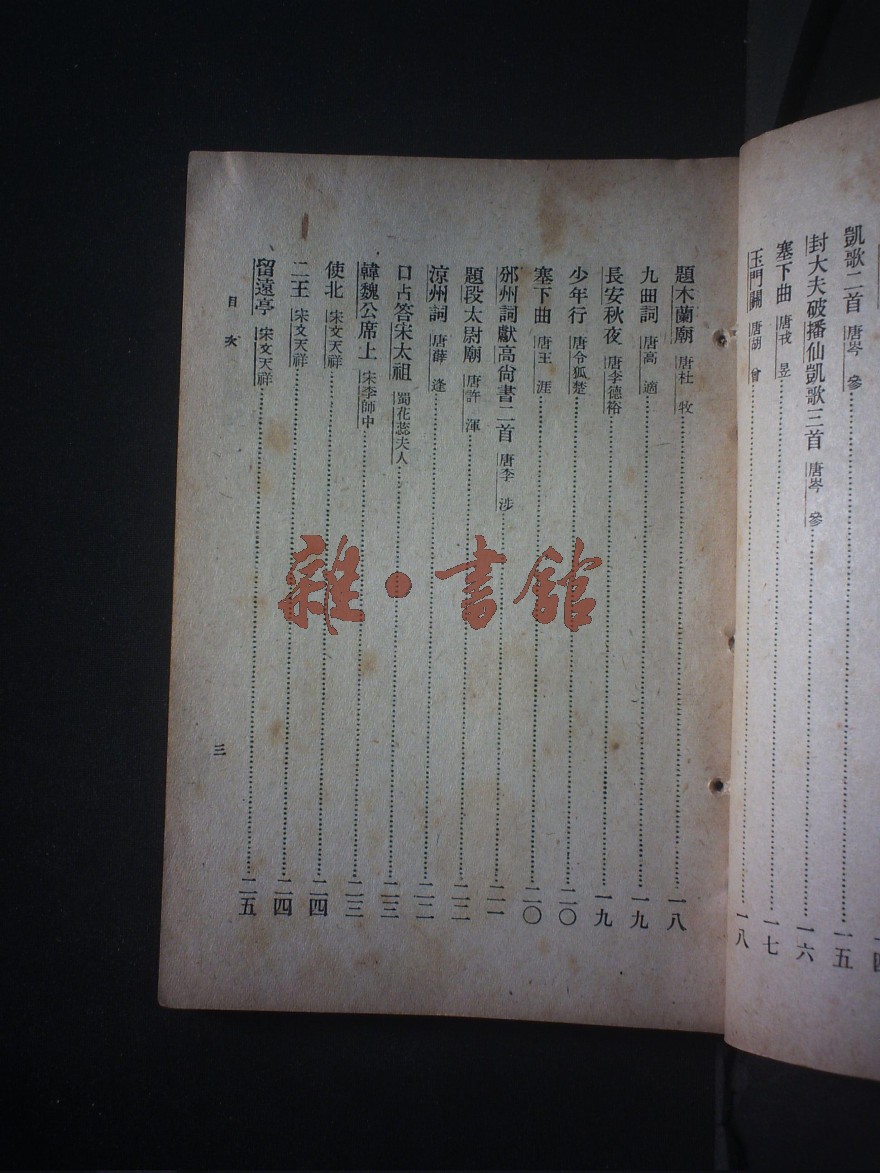 凱歌二首 唐岑 參 一五
封大夫破播仙凱歌三首 唐岑 參 一六
塞下曲 唐戎 昱 一七
玉門關 唐胡 曾 一八
題木蘭廟 唐杜 牧 一八
九曲詞 唐高 適 一九
長安秋夜 唐李德裕 一九
少年行 唐令狐楚 二〇
塞下曲 唐王 涯 二〇
邠州詞獻高尚書二首 唐李 涉 二一
題段太尉廟 唐許 渾 二二
涼州詞 唐薛 逢 二二
口占答宋太祖 蜀花蕊夫人 二三
韓魏公席上 宋李師中 二三
使北 宋文天祥 二四
二王 宋文天祥 二四
留遠亭 宋文天祥 二五
目次
三
雜·書館